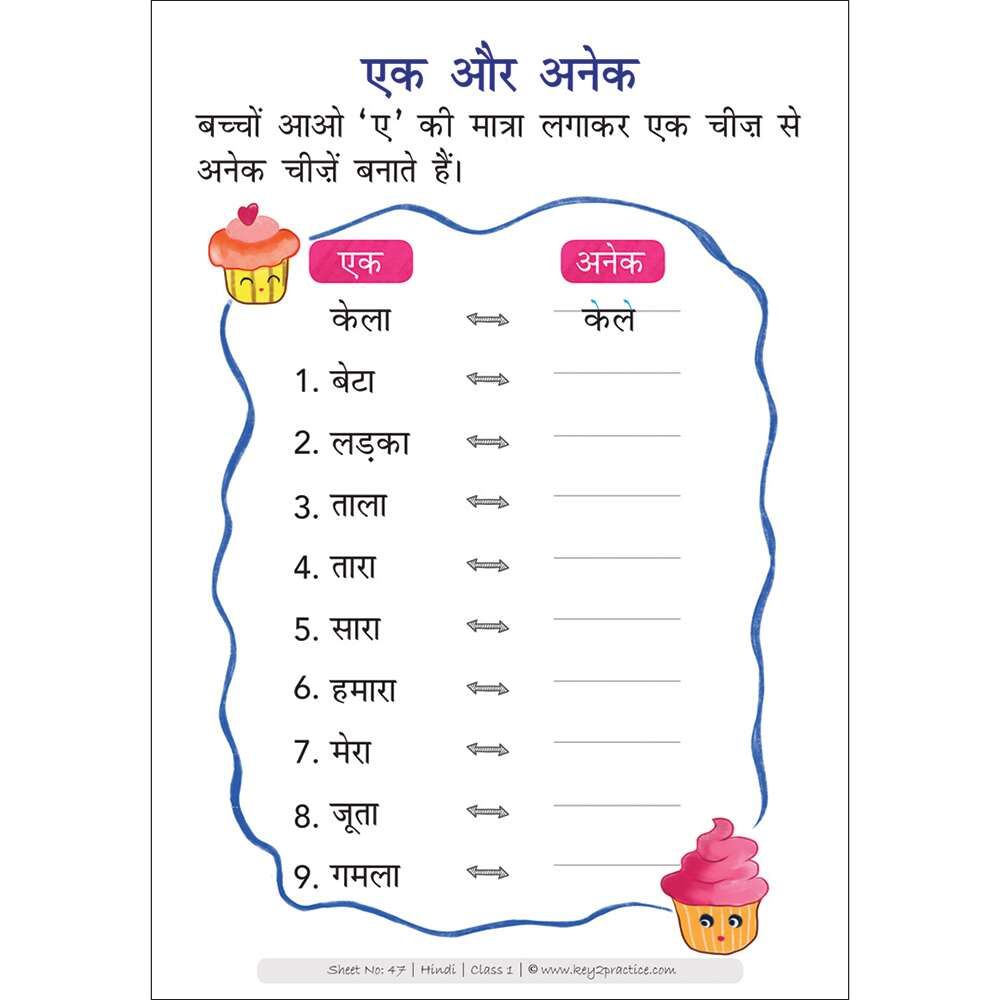 एक और अनेक
बच्चों आओ ‘ए’ की मात्रा लगाकर एक चीज़ से
अनेक चीज़ें बनाते हैं।
एक अनेक
केला केले
1. बेटा
2. लड़का
3. ताला
4. तारा
5. सारा
6. हमारा
7. मेरा
8. जूता
9. गमला
Sheet No: 47 | Hindi | Class 1 | © www.key2practice.com